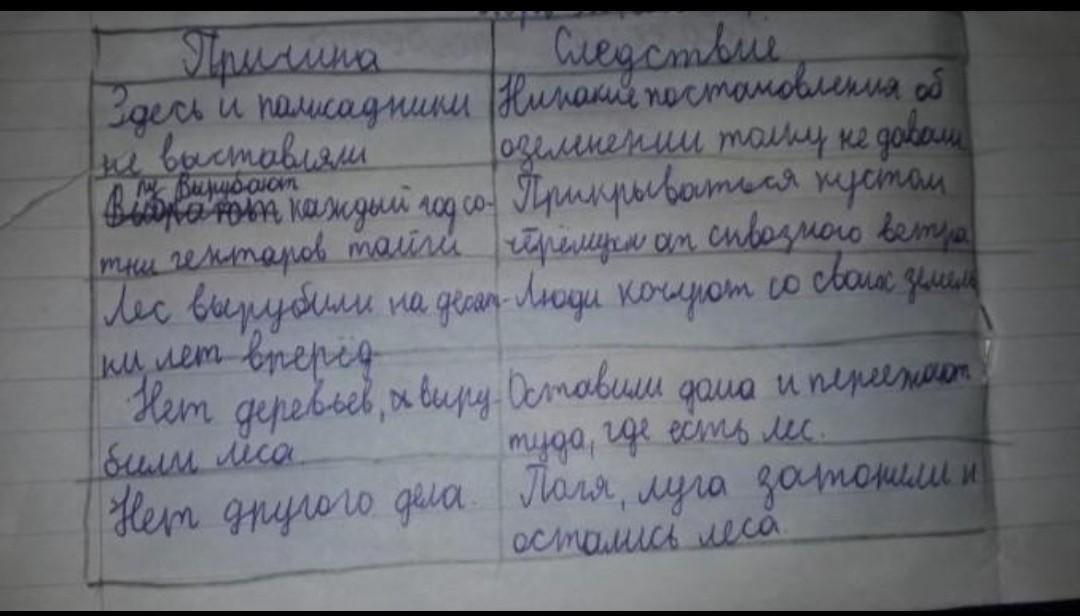 Причина
Следствие
Здесь и палисадники
не выставляли
Никакие постановления об
озеленении толку не давали
Вырубают
каждый год со-
тни гектаров тайги
Прикрываться кустом
черёмухи от сквозного ветра
Лес вырубили на десят-
ки лет вперёд
Люди кочуют со своих земель
Нет деревьев, выру-
били леса
Оставили дома и переежают
туда, где есть лес.
Нет другого дела.
Поля, луга затопили и
остались леса.